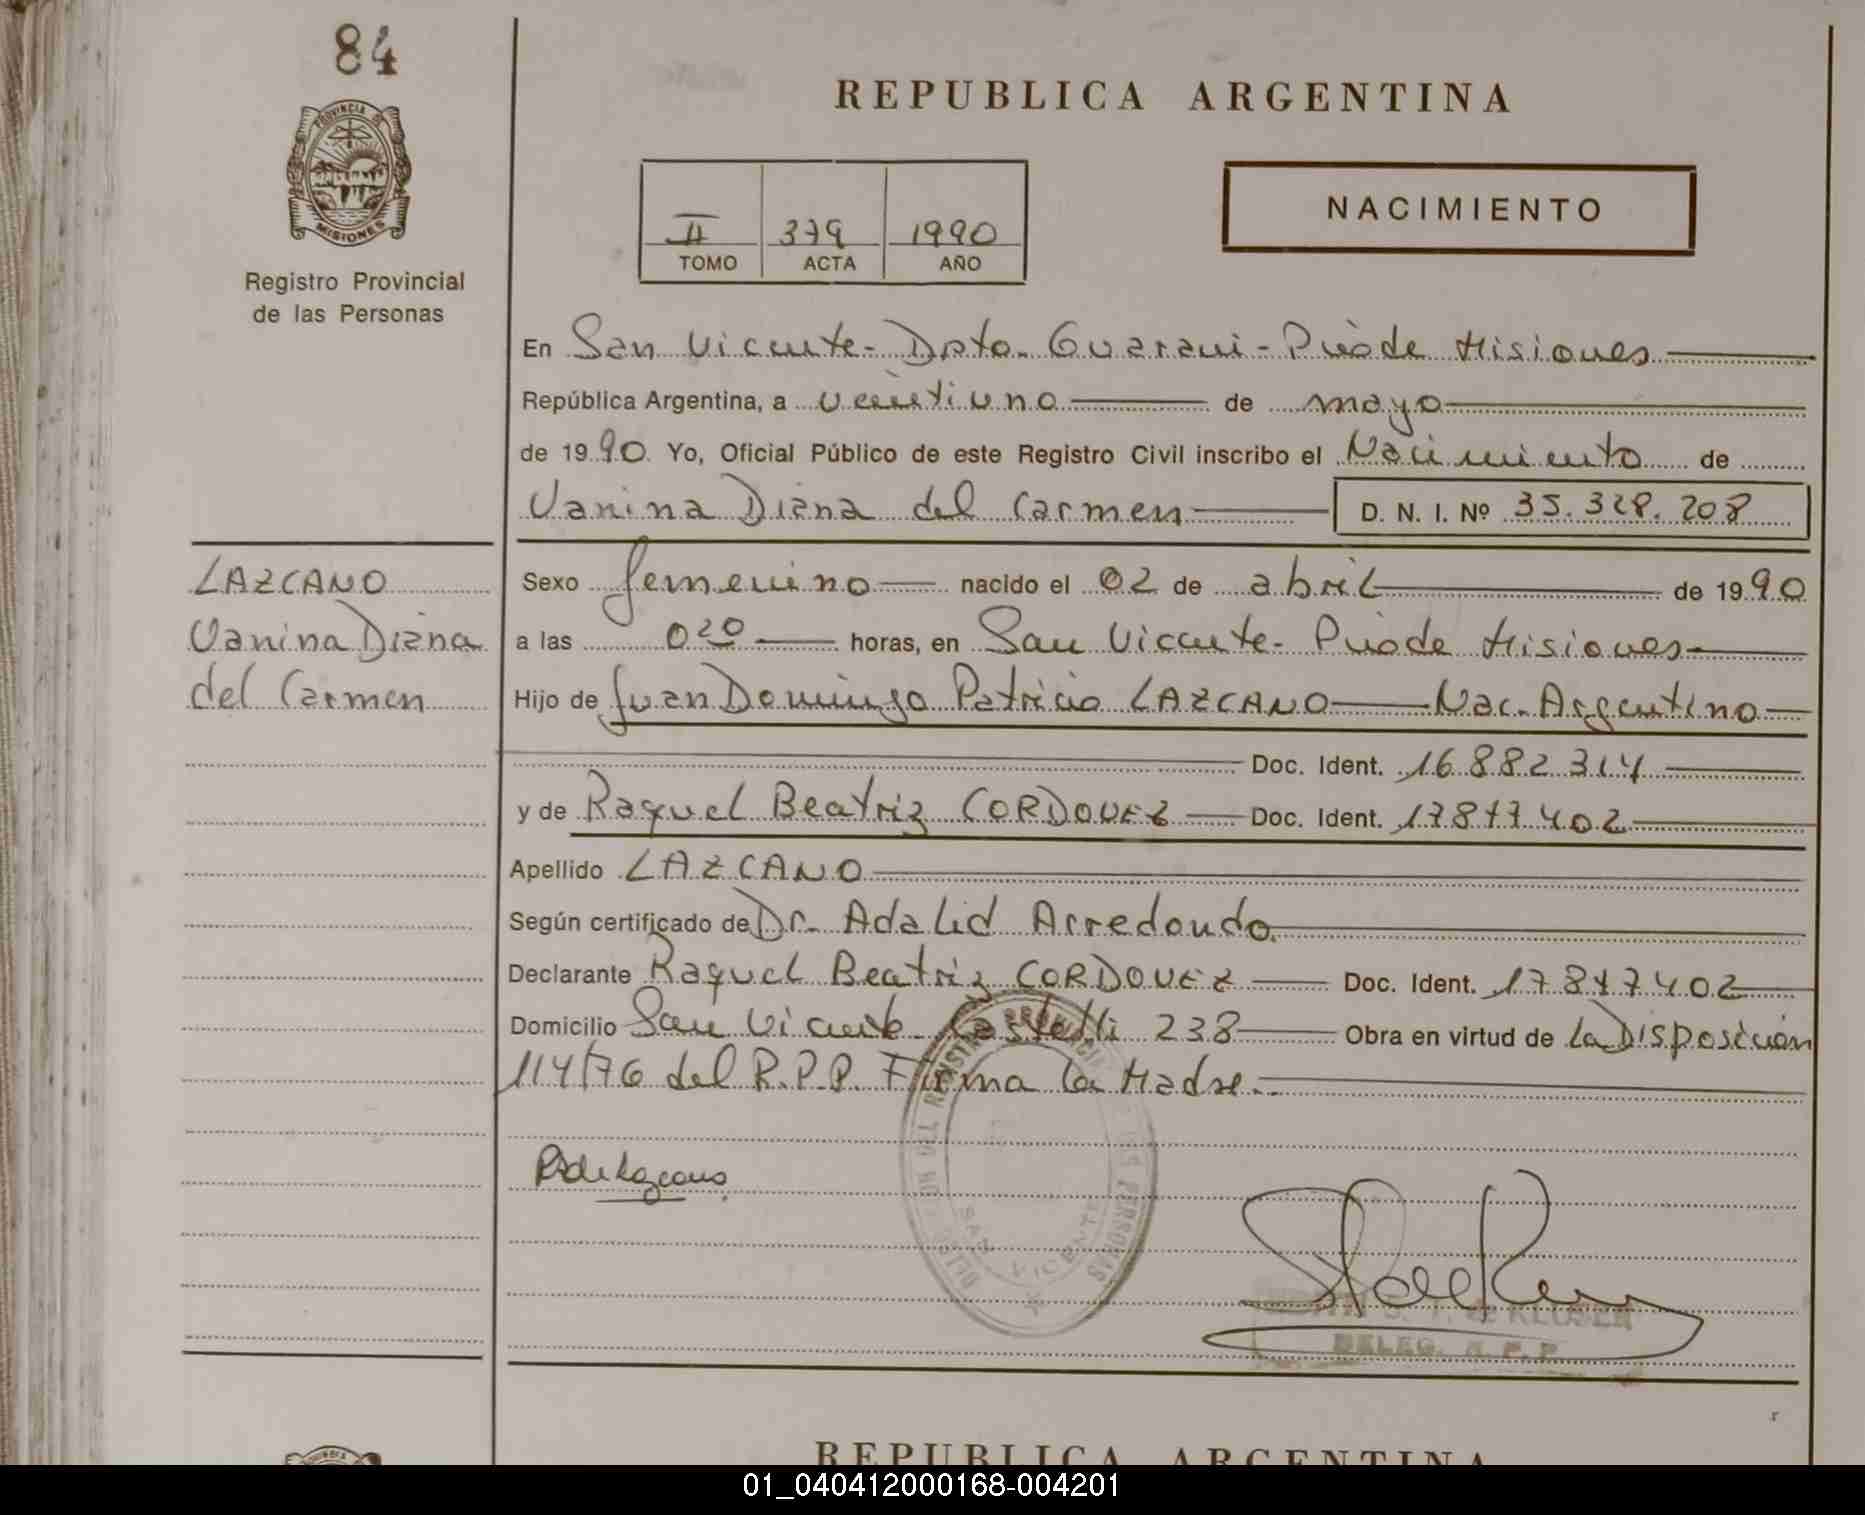 84
PROVINCIA DE
MISIONES
Registro Provincial
de las Personas
REPUBLICA ARGENTINA
II 379 1990
TOMO ACTA AÑO
NACIMIENTO
En San Vicente - Dpto. Guarani - Pvia de Misiones
República Argentina, a veintiuno de mayo
de 1990 Yo, Oficial Público de este Registro Civil inscribo el Nacimiento de
Vanina Diana del Carmen D. N. I. Nº 35.328.208
LAZCANO
Vanina Diana
del Carmen
Sexo femenino nacido el 02 de abril de 1990
a las 0 20 horas, en San Vicente - Pvia de Misiones
Hijo de Juan Domingo Patricio LAZCANO Nac. Argentino
Doc. Ident. 16882314
y de Raquel Beatriz CORDOVEZ Doc. Ident. 17847402
Apellido LAZCANO
Según certificado de Dr. Adalid Arredondo
Declarante Raquel Beatriz CORDOVEZ Doc. Ident. 17847402
Domicilio San Vicente Castelli 238 Obra en virtud de la Disposición
114/76 del R.P.P. Firma la Madre.
SAN VICENTE
DE KLUSEN
DELEG. R. P. P.
REPUBLICA ARGENTINA
01_040412000168-004201